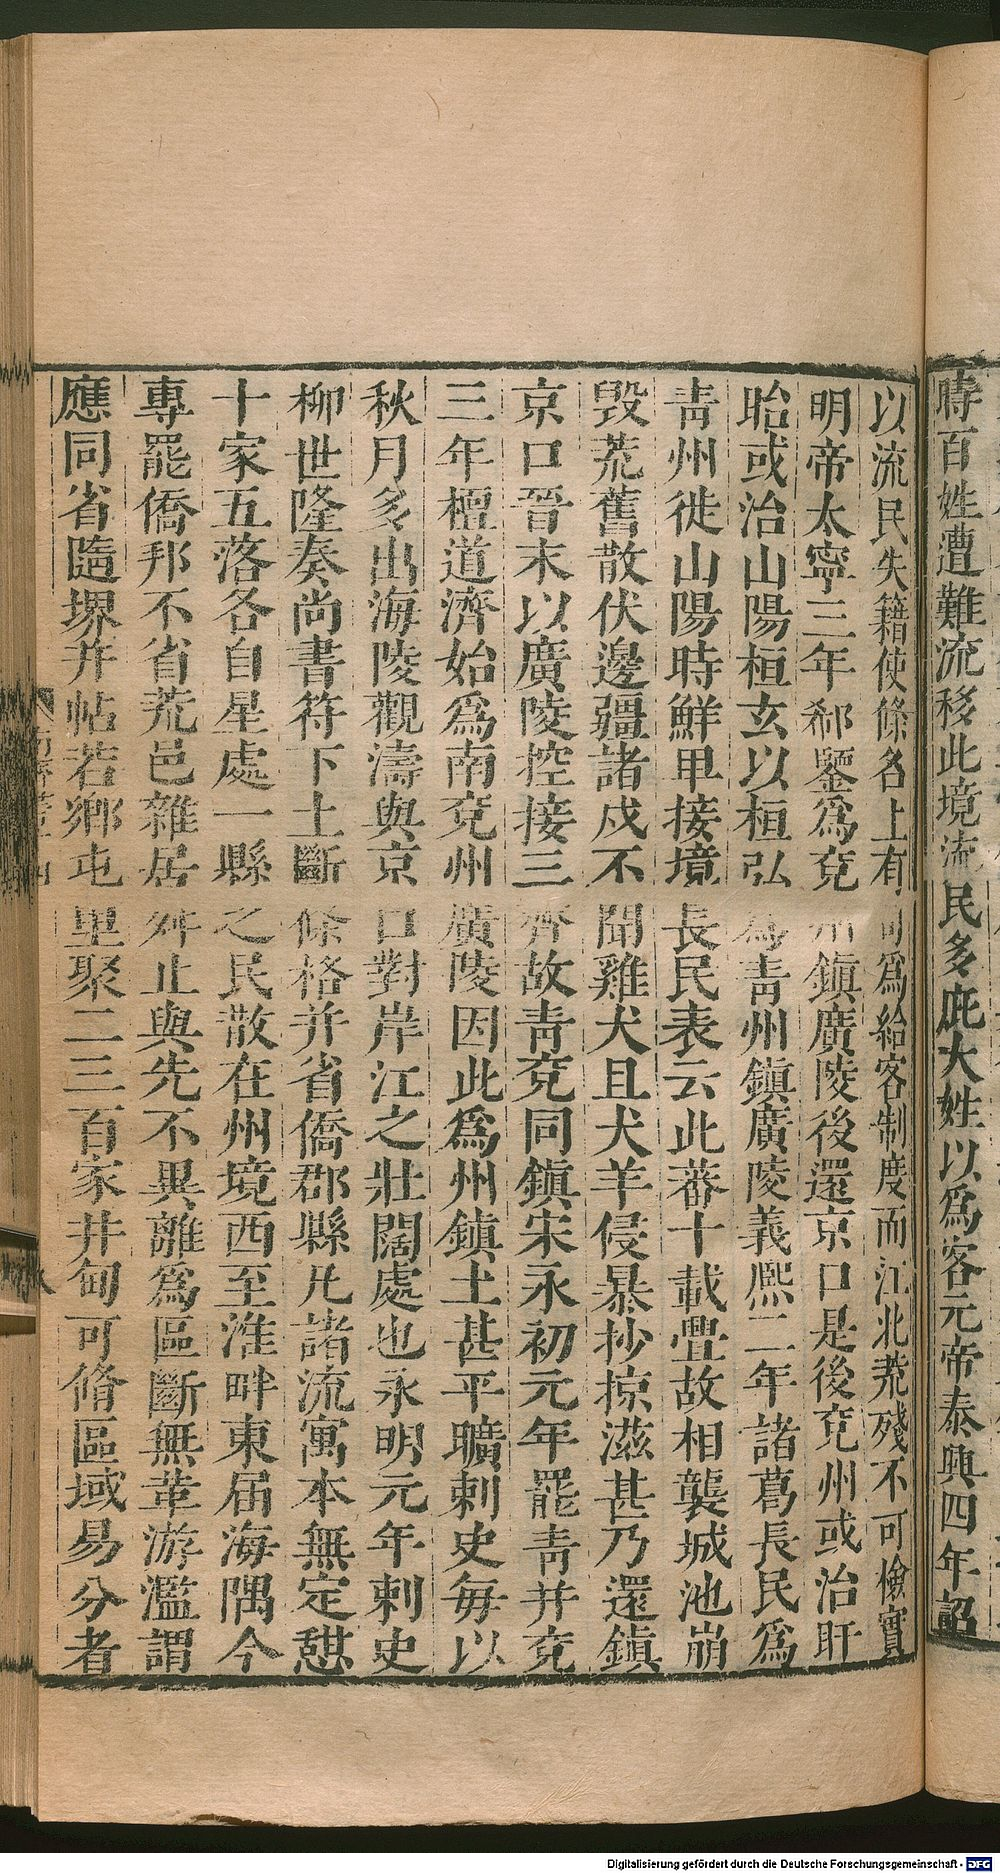 時百姓遭難流移此境流民多庇大姓以爲客元帝泰興四年詔
以流民失籍使條名上有司爲給客制度而江北荒殘不可檢實
明帝太寧三年郗鑒爲兗州鎮廣陵後還京口是後兗州或治盱
眙或治山陽桓玄以桓弘爲青州鎮廣陵義熙二年諸葛長民爲
青州徙山陽時鮮卑接境長民表云此蕃十載舋故相襲城池崩
毀荒舊散伏邊疆諸戍不聞雞犬且犬羊侵暴抄掠滋甚乃還鎮
京口晉末以廣陵控接三齊故青兗同鎮宋永初元年罷青并兗
三年檀道濟始爲南兗州廣陵因此爲州鎮土甚平曠刺史每以
秋月多出海陵觀濤與京口對岸江之壯闊處也永明元年刺史
柳世隆奏尚書符下土斷條格并省僑郡縣凡諸流寓本無定憇
十家五落各自星處一縣之民散在州境西至淮畔東届海隅今
專罷僑邦不省荒邑雜居舛止與先不異離爲區斷無革游濫謂
應同省隨堺并帖若鄉屯里聚二三百家井甸可脩區域易分者
Digitalisierung gefördert durch die Deutsche Forschungsgemeinschaft - DFG